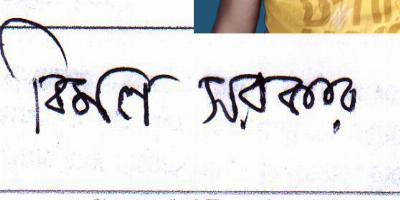 বিমল সরকার